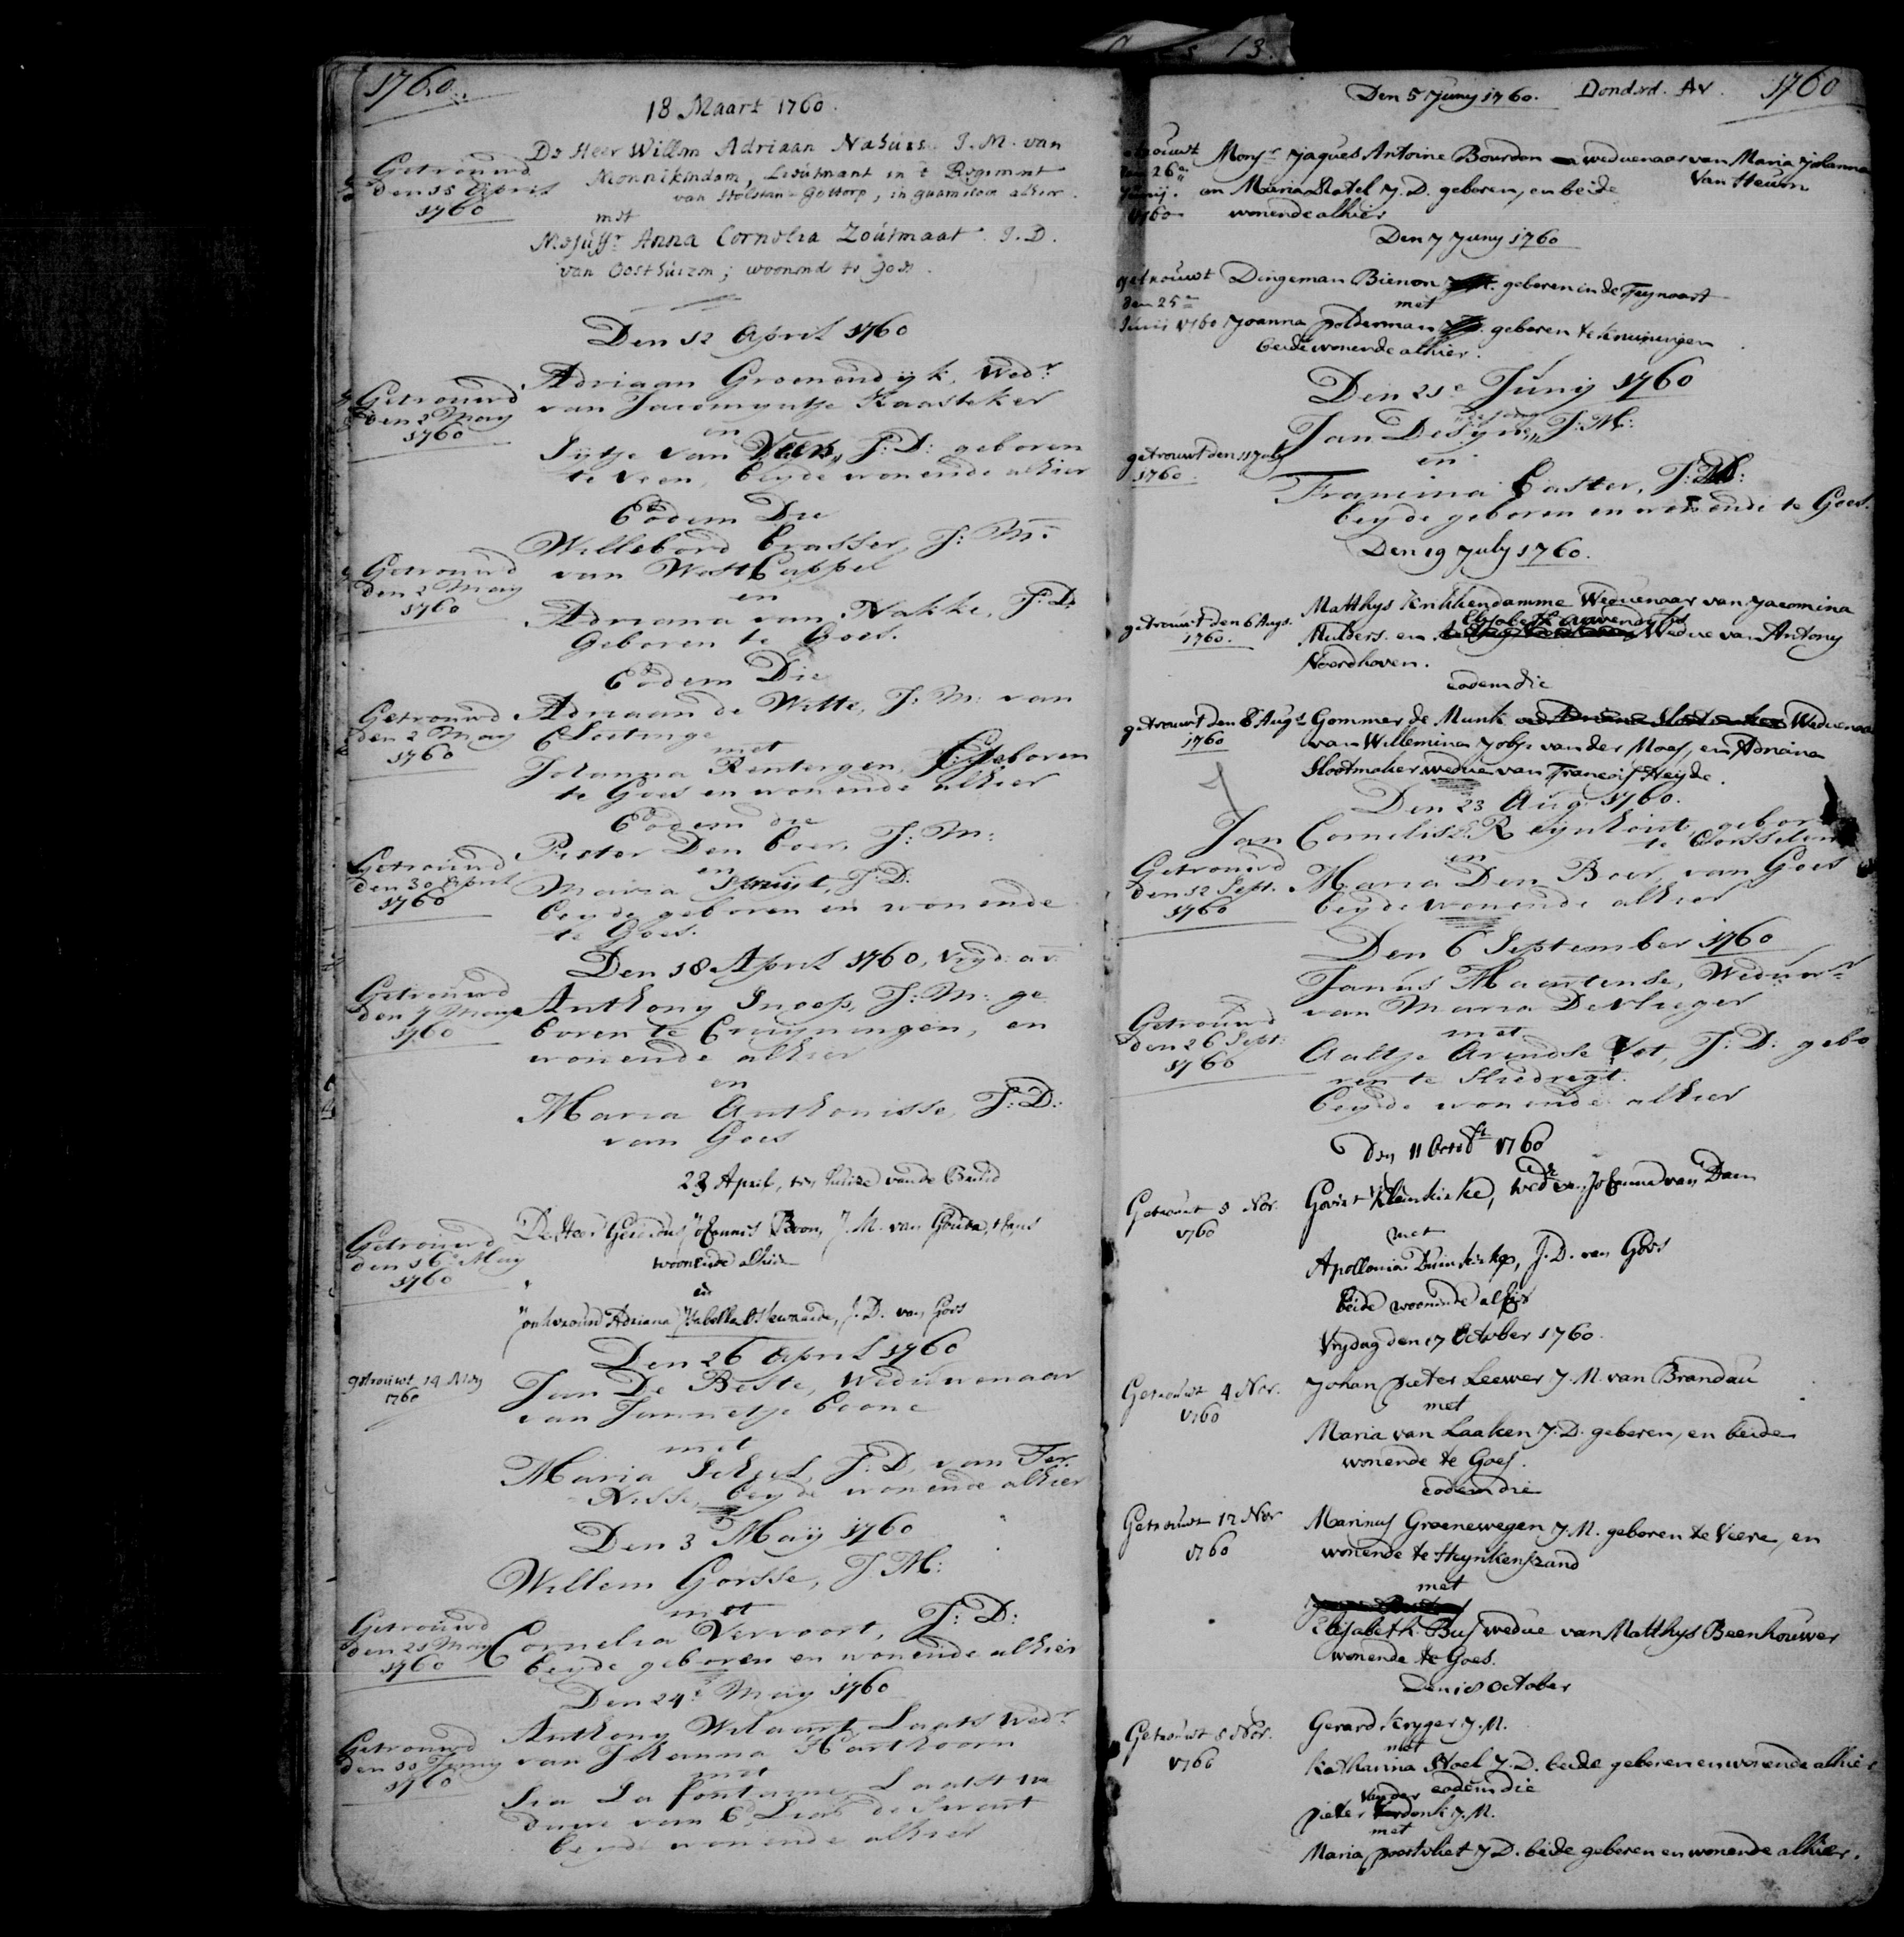 1760
18 Maart 1760.
De Heer Willem Adriaan Nahuis J. M. van
Getrouwd
den 15 April
1760
Monnikendam, Lieutnant in 't Regiment
van Holstein-Gottorp, in guarnisoen alhier.
met
Mejuffr Anna Cornelia Zoutmaat J. D.
van Oosthuizen; woonende te Goes.
Den 12 April 1760
Getrouwd
den 2 May
1760
Adriaan Groenendijk, Wedr
van Jacomyntje Kaasteker
en
Sijtje van Veen, J: D: geboren
te Veen, beyde wonende alhier
Eodem Die
Getrouwd
den 2 May
1760
Willebord Crasser, J: M:
van WestCappel
en
Adriana van Nakke, J: D:
Geboren te Goes.
Eodem Die
Getrouwd
den 2 May
1760
Adriaan de Witte, J: M: van
Cloetinge
met
Johanna Rentergen, Geboren
te Goes en wonende alhier
Eodem die
Getrouwd
den 30 April
1760
Pieter Den Boer, J: M:
en
Maria J: D:
beyde geboren en wonende
te Goes.
Den 18 April 1760, vryd: av:
Getrouwd
den 7 May
1760
Anthony Snoep, J: M: ge
boren te Cruyningen, en
wonende alhier
en
Maria Anthonisse, J: D:
van Goes
23 April, ten huize van de Bruid
Getrouwd
den 16 May
1760
De Heer Gerardus Johannes Boon, J. M. van Gouda, thans
woonende alhier
en
Jonkvrouw Adriana Isabella Ostewaarde, J. D. van Goes
Den 26 April 1760
getrouwt 14 May
1760
Jan De Beste, Weduwenaar
van Jannetje Coone
met
Maria J: D. van Ter
Nisse, beyde wonende alhier
Den 3 Maij 1760
Willem Gorsse, J. M:
met
Getrouwd
den 21 May
1760
Cornelia Vervoort, J: D:
beyde geboren en wonende alhier
Den 24e May 1760
Getrouwd
den Juny
1760
Anthony Wilaart, Laats Wedr
van Johanna Harthoorn
met
La fontaine, Laatst we
duwe van de Swart
beyde wonende alhier
Den 5 Juny 1760. Donderd. Av. 1760
getrouwt
den 26en
Junij.
1760
Monsr Jaques Antoine Bourdon weduenaar van Maria Johanna
van Heusen
en Maria Ratel J. D. geboren, en beide
wonende alhier
Den 7 Juny 1760
getrouwt
den 25e
Junii 1760
Dingeman Bienon geboren in de Fynaart
met
Joanna Polderman geboren te Kruiningen
beide wonende alhier.
Den 21e Junij 1760
de jong
Jan Desijne, J: M:
en
getrouwt den 11 July
1760.
Francina Caster, J: D:
beyde geboren en wonende te Goes.
Den 19 July 1760.
getrouwt den 6 Augs.
1760.
Matthys Krikkendamme Weduenaar van Jacomina
Elisabeth
Mulders. en Wedue van Antony
Noordhoven.
eodem die
getrouwt den 8 Augs
1760
Gommer de Munk Weduenaar
van Willemina Jobse van der Maas, en Adriana
Slootmaker wedue van Francois Heyde.
Den 23 Aug: 1760.
Jan Cornelisse Reijnhout, gebor
te Borsselen
en
Getrouwd
den 12 Sept.
1760
Maria Den Boer, van Goes
beyde wonende alhier
Den 6 September 1760
Janus Maartense, Weduwr
van Maria De Vlieger
met
Getrouwd
den 26 Sept:
1760
Aaltje Arendse Vot, J: D: gebo
ren te Sliedregt.
beyde wonende alhier
den 11 Octobr 1760
Getrouwt 5 Nov.
1760
Govert Kleinkirke, Wedr van Johanna van Dam
met
Apollonia Duinkerke, J. D. van Goes
beide woonende alhier
Vrydag den 17 October 1760.
Getrouwt 4 Nov.
1760
Johan Pieter Leewer J. M. van Brandau
met
Maria van Laaken J. D. geboren, en beide
wonende te Goes.
eodem die
Getrouwt 12 Nov
1760
Marinus Groenewegen J. M. geboren te Veere, en
wonende te Heynkenszand
met
Elisabeth Bus wedue van Matthys Beenhouwer
wonende te Goes.
Den 18 October
Getrouwt 5 Nov.
1760
Gerard Kryger J. M.
met
Katharina Hoel J. D. beide geboren en wonende alhier
eodem die
van der
Pieter donk J. M.
met
Maria Poortvliet J D. beide geboren en wonende alhier.